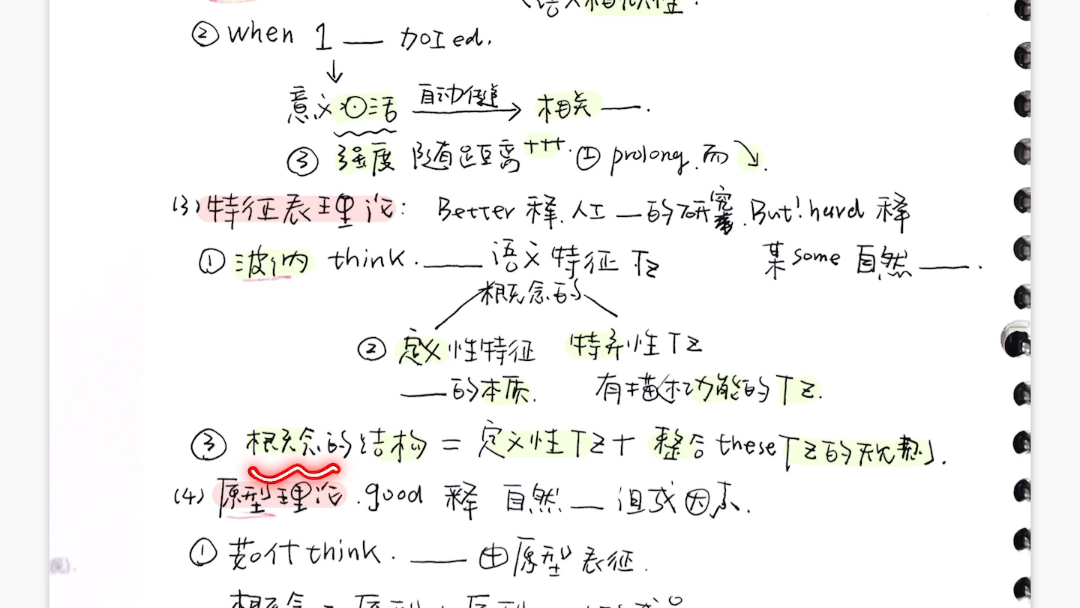 ② when 1 __ 加工ed.
↓
意义 激活 自动传递 → 相关 __.
③ 强度 随距离+++. ① prolong. 而↘.
(3) 特征表理论: Better 释. 人工 __ 的研究. But! hard 释
① 波纳 think. __ 语义特征 TZ 某some 自然 __.
概念的
② 定义性特征 特异性TZ
__ 的本质. 有描述功能的TZ.
③ 概念的结构 = 定义性TZ + 整合these TZ的规则.
(4) 原型理论. good 释 自然 __ 组成因素.
① 茹什think. __ 由原型表征.